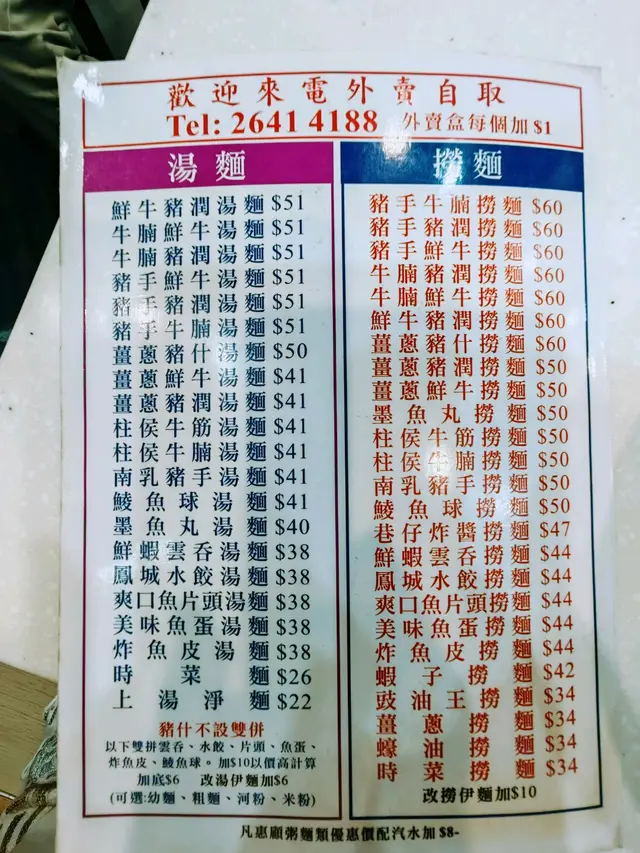 歡迎來電外賣自取
Tel: 2641 4188 外賣盒每個加$1
湯麵
鮮牛豬潤湯麵 $51
牛腩鮮牛湯麵 $51
牛腩豬潤湯麵 $51
豬手鮮牛湯麵 $51
豬手豬潤湯麵 $51
豬手牛腩湯麵 $51
薑蔥豬什湯麵 $50
薑蔥鮮牛湯麵 $41
薑蔥豬潤湯麵 $41
柱侯牛筋湯麵 $41
柱侯牛腩湯麵 $41
南乳豬手湯麵 $41
鯪魚球湯麵 $41
墨魚丸湯麵 $40
鮮蝦雲吞湯麵 $38
鳳城水餃湯麵 $38
爽口魚片頭湯麵 $38
美味魚蛋湯麵 $38
炸魚皮湯麵 $38
時菜麵 $26
上湯淨麵 $22
豬什不設雙併
以下雙拼雲吞、水餃、片頭、魚蛋、
炸魚皮、鯪魚球。加$10以價高計算
加底$6 改湯伊麵加$6
(可選:幼麵、粗麵、河粉、米粉)
撈麵
豬手牛腩撈麵 $60
豬手豬潤撈麵 $60
豬手鮮牛撈麵 $60
牛腩豬潤撈麵 $60
牛腩鮮牛撈麵 $60
鮮牛豬潤撈麵 $60
薑蔥豬什撈麵 $60
薑蔥豬潤撈麵 $50
薑蔥鮮牛撈麵 $50
墨魚丸撈麵 $50
柱侯牛筋撈麵 $50
柱侯牛腩撈麵 $50
南乳豬手撈麵 $50
鯪魚球撈麵 $50
巷仔炸醬撈麵 $47
鮮蝦雲吞撈麵 $44
鳳城水餃撈麵 $44
爽口魚片頭撈麵 $44
美味魚蛋撈麵 $44
炸魚皮撈麵 $44
蝦子撈麵 $42
豉油王撈麵 $34
薑蔥撈麵 $34
蠔油撈麵 $34
時菜撈麵 $34
改撈伊麵加$10
凡惠顧粥麵類優惠價配汽水加 $8-